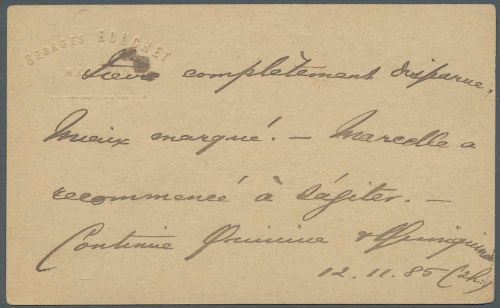 GEORGES BOUCHET
Fièvre complètement disparue.
Mieux marqué! — Marcelle a
recommencé à s'agiter. —
Continue Quinine & Quinquina
12.11.85 (2h.)